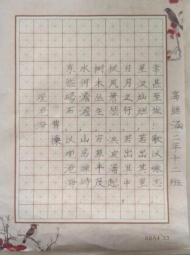 观沧海
曹操
东临碣石 以观沧海
水何澹澹 山岛竦峙
树木丛生 百草丰茂
秋风萧瑟 洪波涌起
日月之行 若出其中
星汉灿烂 若出其里
幸甚至哉 歌以咏志
二年十二班